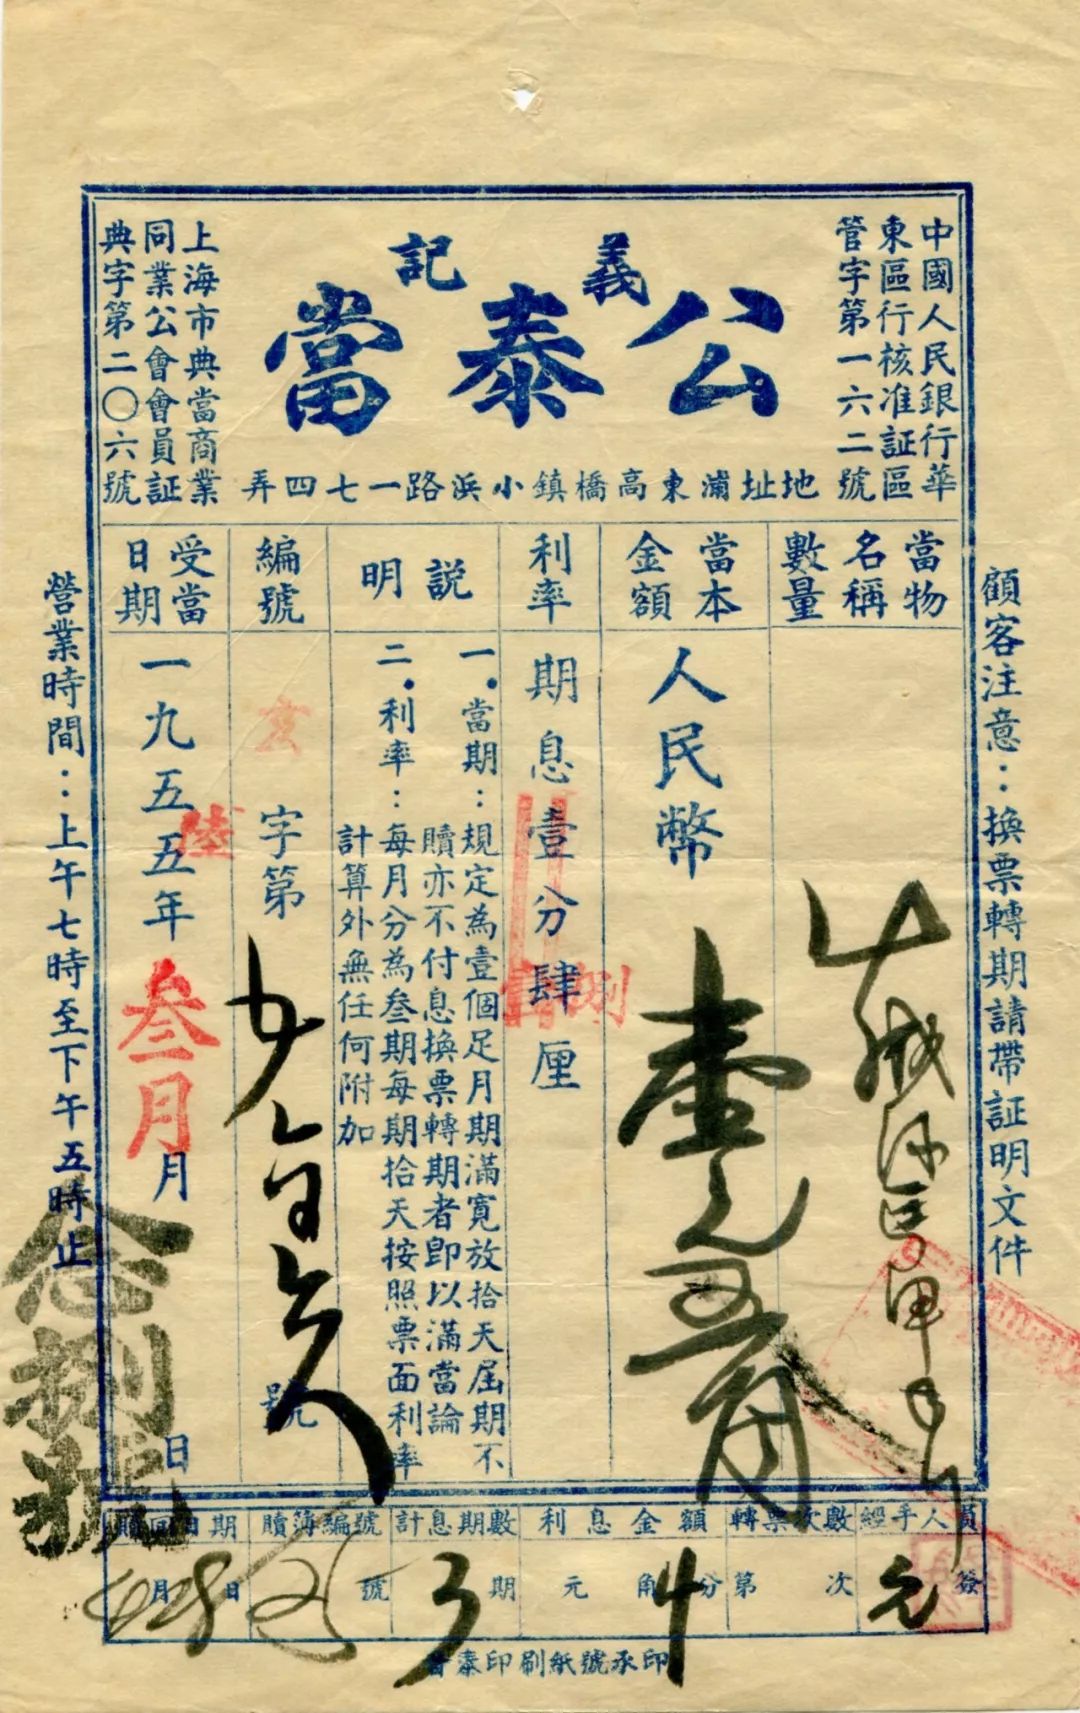 中國人民銀行華
東區行核准証區
管字第一六二號
義記
公泰當
上海市典當商業
同業公會會員証
典字第二〇六號
地址浦東高橋鎮小浜路一七四弄
顧客注意：換票轉期請帶証明文件
當物
名稱
數量
當本
金額
人民幣
壹元
角
利率
期息壹分肆厘
捌
説明
一.當期：規定為壹個足月期滿寬放拾天屆期不
贖亦不付息換票轉期者即以滿當論
二.利率：每月分為叁期每期拾天按照票面利率
計算外無任何附加
編號
玄
字第
號
受當
日期
一九五五年
陸
叁月
月
念捌號
日
營業時間：上午七時至下午五時止
經手人員
簽
轉票次數
第 次
利息金額
元 角 分
4
計息期數
3 期
贖簿編號
號
贖回日期
月 日
泰印刷紙號承印